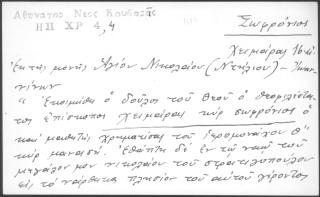 Αθηνάτος Νέος Κουβαράς
ΗΠ ΧΡ 4, 4
Σωφρόνιος
Χειμάρας 16 αἰ.
Ἐκ τῆς μονῆς Ἁγίου Νικολαίου (Ντίλιου) - Ἰωαν-
νίνων
"Ἐκοιμήθη ὁ δοῦλος τοῦ Θεοῦ ὁ θεοφιλέστα-
τος ἐπίσκοπος Χειμάρας κύρ Σωφρόνιος ὁ
καί μαθητής χρηματίσας τοῦ ἱερομονάχου
κύρ Μανασσῆ. Ἐθάπτη δέ ἐν τῷ ναῷ τοῦ
μεγάλου μου Νικολάου τοῦ στρατηγοπούλου
εἰς τό νάρθηκα πλησίον τοῦ αὐτοῦ γέροντος